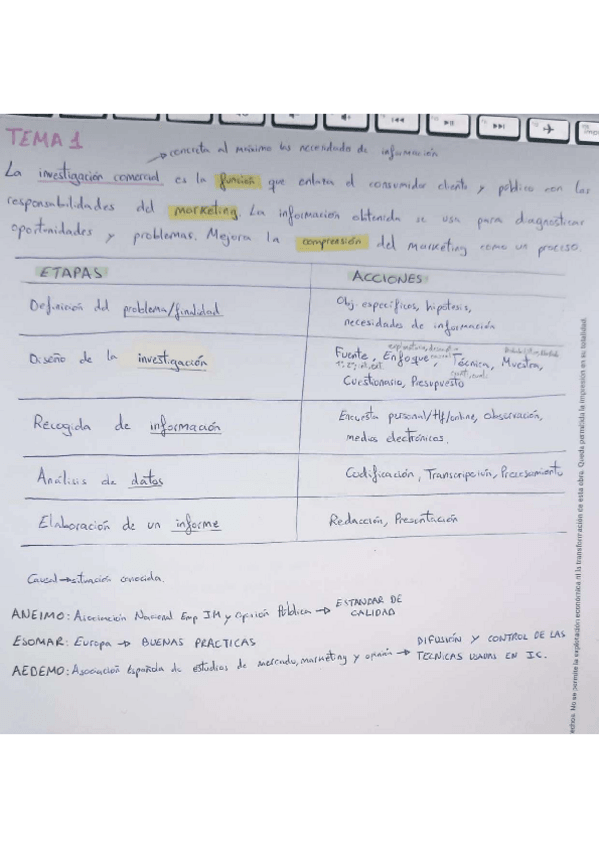 TEMA 1
→ concreta al máximo las necesidades de información
La investigación comercial es la función que enlaza el consumidor cliente y público con las
responsabilidades del marketing. La información obtenida se usa para diagnosticar
oportunidades y problemas. Mejora la comprensión del marketing como un proceso.
ETAPAS
ACCIONES
Definición del problema/finalidad
Obj. específicos, hipótesis,
necesidades de información
Diseño de la investigación
Fuente, Enfoque, Técnica, Muestra,
Cuestionario, Presupuesto
Recogida de información
Encuesta personal/tlf/online, observación,
medios electrónicos.
Análisis de datos
Codificación, Transcripción, Procesamiento
Elaboración de un informe
Redacción, Presentación
Causal → situación conocida.
ANEIMO: Asociación Nacional Emp IM y Opinión Pública → ESTANDAR DE
CALIDAD
ESOMAR: Europa → BUENAS PRACTICAS
AEDEMO: Asociación Española de estudios de mercado, marketing y opinión → DIFUSIÓN Y CONTROL DE LAS
TECNICAS USADAS EN IC.
echos. No se permite la explotación económica ni la transformación de esta obra. Queda permitida la impresión en su totalidad.